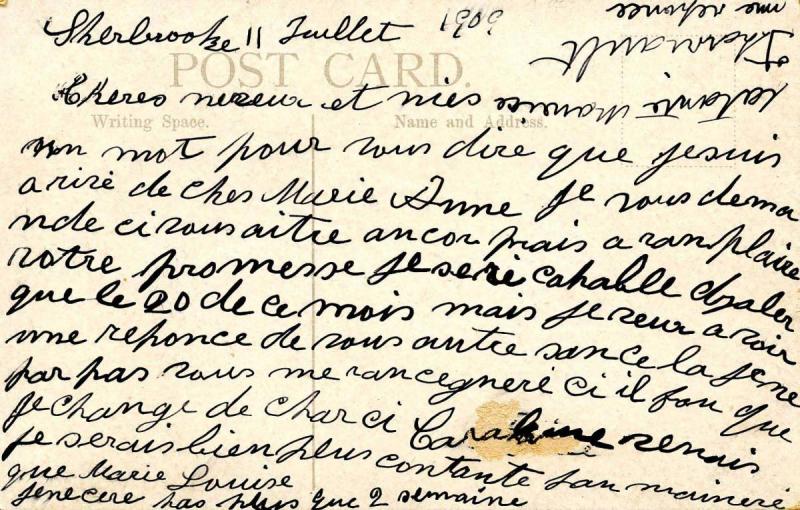 Sherbrooke 11 Juillet
POST CARD.
Cheres neveux et nies
Writing Space.
Name and Address.
un mot pour vous dire que je suis
arivé de ches Marie Anne je vous dema
nde ci vous aitre ancor prais a ranplaire
votre promesse je seré capable d'aler
que le 20 de ce mois mais je veux avoir
une reponce de vous autre sance la je ne
par pas vous me rancegneré ci il fau que
je change de char ci venais
je serais bien plus contante
que Marie Louise
je ne ceré pas plus que 2 semaine
votre tante
Theriault
une reponce